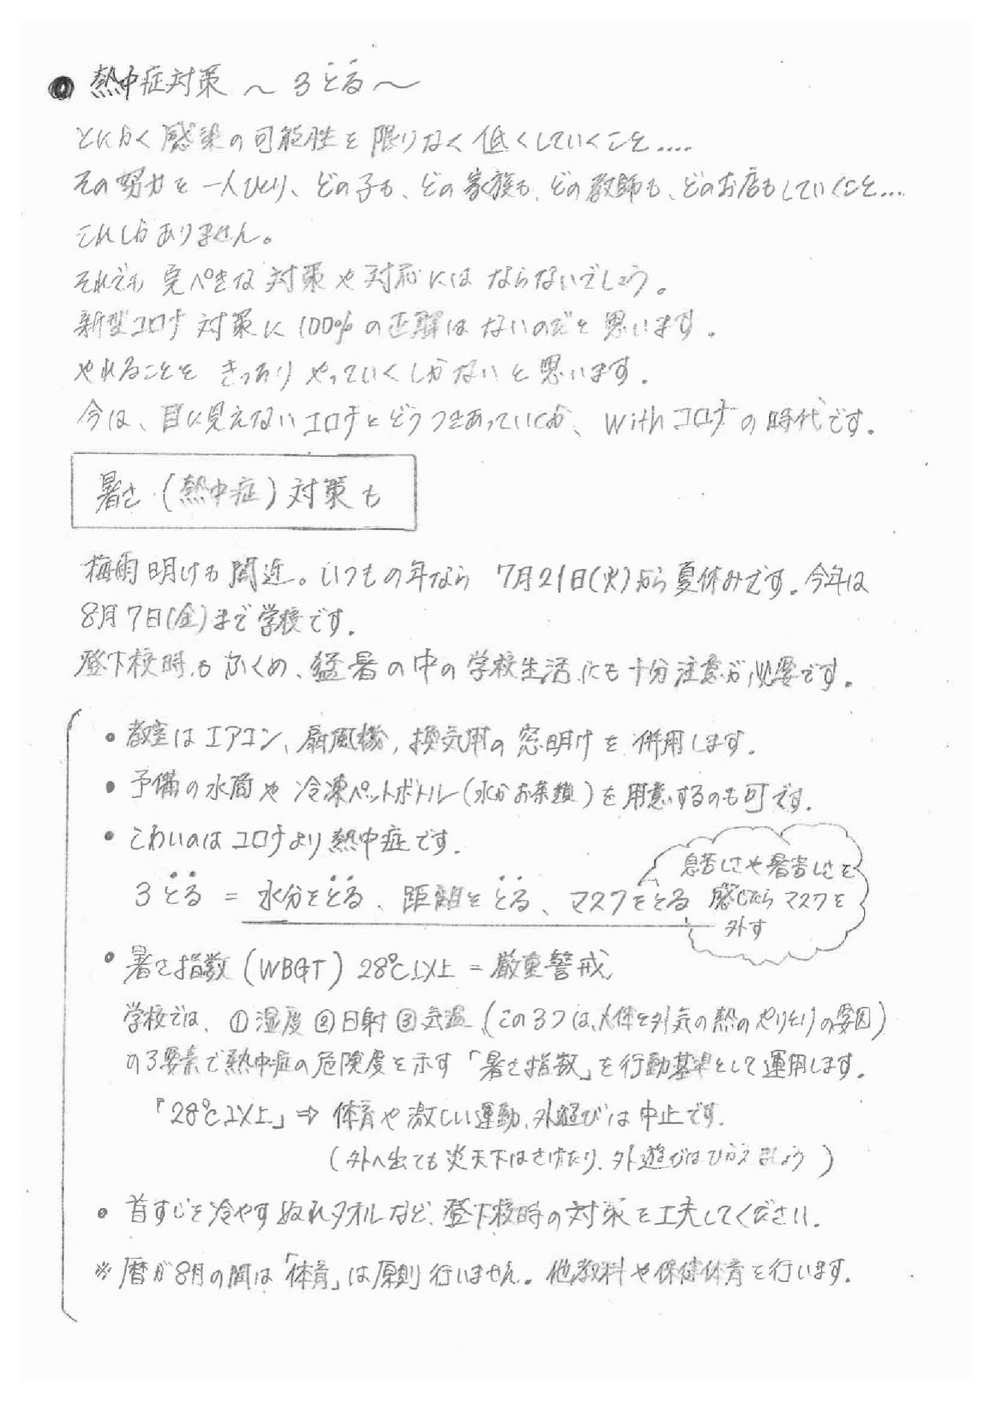 ● 熱中症対策 ～ 3とる～
とにかく感染の可能性を限りなく低くしていくこと....
その努力を一人ひとり、どの子も、どの家族も、どの教師も、どのお店もしていくこと...
これしかありません。
それでも完ぺきな対策や対応にはならないでしょう。
新型コロナ対策に100%の正解はないのだと思います。
やれることをきっちりやっていくしかないと思います。
今は、目に見えないコロナとどうつきあっていくか、Withコロナの時代です。
暑さ(熱中症)対策も
梅雨明けも間近。いつもの年なら 7月21日(火)から夏休みです。今年は
8月7日(金)まで学校です。
登下校時もふくめ、猛暑の中の学校生活にも十分注意が必要です。
・教室はエアコン、扇風機、換気用の窓明けを併用します。
・予備の水筒や冷凍ペットボトル(水かお茶類)を用意するのも可です。
・こわいのはコロナより熱中症です。
3とる = 水分をとる、距離をとる、マスクをとる
息苦しさや暑苦しさを
感じたらマスクを
外す
・暑さ指数(WBGT) 28℃以上 = 厳重警戒
学校では、①湿度②日射③気温(この3つは、人体と外気の熱のやりとりの要因)
の3要素で熱中症の危険度を示す「暑さ指数」を行動基準として運用します。
「28℃以上」⇒ 体育や激しい運動、外遊びは中止です。
(外へ出ても炎天下はさけたり、外遊びはひかえましょう)
・首すじを冷やすぬれタオルなど、登下校時の対策を工夫してください。
※暦が8月の間は「体育」は原則行いません。他教科や保健体育を行います。